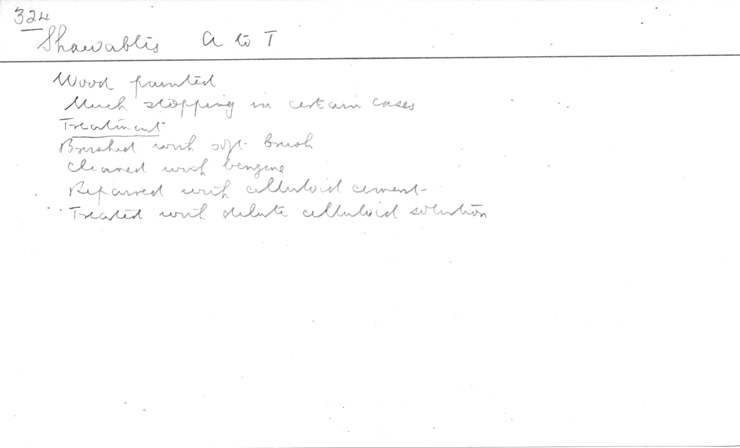 324
Shawabtis a to T
Wood painted
Much stopping in certain cases
Treatment
Brushed with soft brush
Cleaned with benzine
Repaired with celluloid cement
Treated with dilute celluloid solution